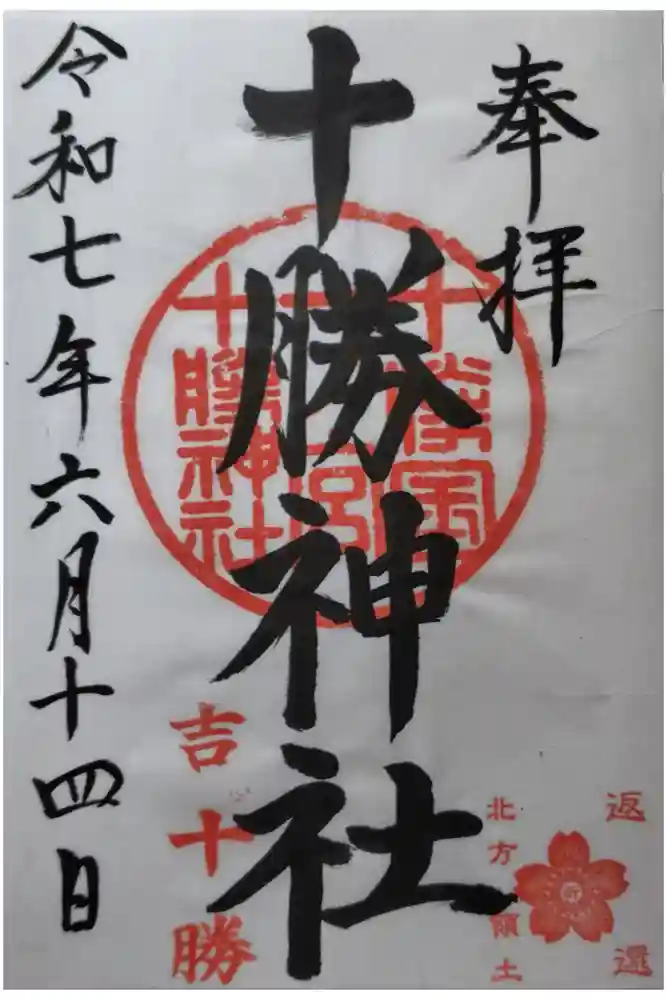 奉拝
十勝神社
令和七年六月十四日
十勝國
一宮
十勝神社
吉十勝
北方領土
返還
祈